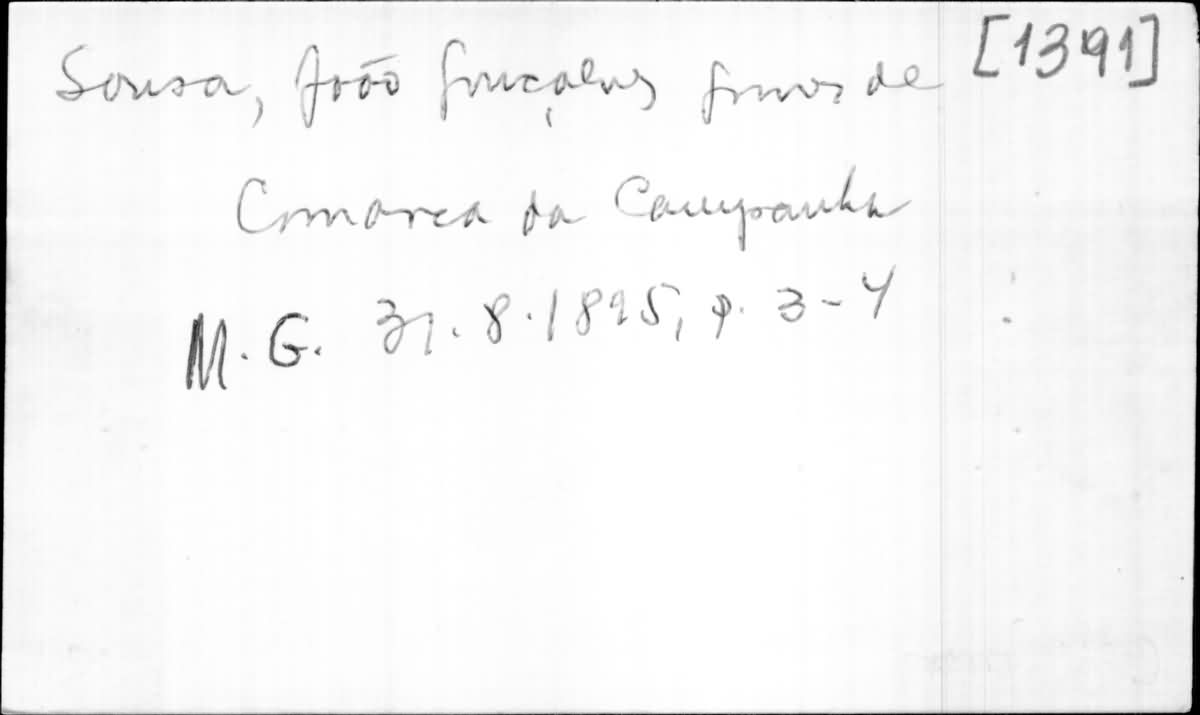 Sousa, João Gonçalves Gomes de [1391]
Comarca da Campanha
M. G. 31.8.1895, p. 3-4